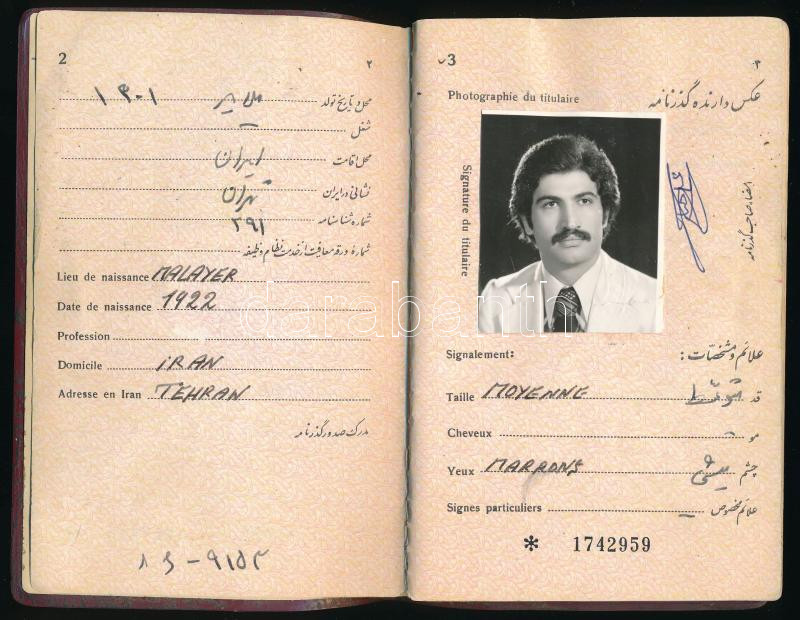 2 ۲
محل و تاریخ تولد ملایر ۱۳۰۱
شغل –
محل اقامت ایران
نشانی در ایران تهران
شماره شناسنامه ۲۹۱
شماره ورقه معافیت از خدمت نظام وظیفه
Lieu de naissance MALAYER
Date de naissance 1922
Profession
Domicile IRAN
Adresse en Iran TEHRAN
مدرک صدور گذرنامه
3 ۳
Photographie du titulaire عکس دارنده گذرنامه
Signature du titulaire
امضاء صاحب گذرنامه
Signalement: علائم و مشخصات:
Taille MOYENNE قد
Cheveux مو –
Yeux MARRONS چشم میشی
Signes particuliers علائم مخصوص –
* 1742959
darabanth